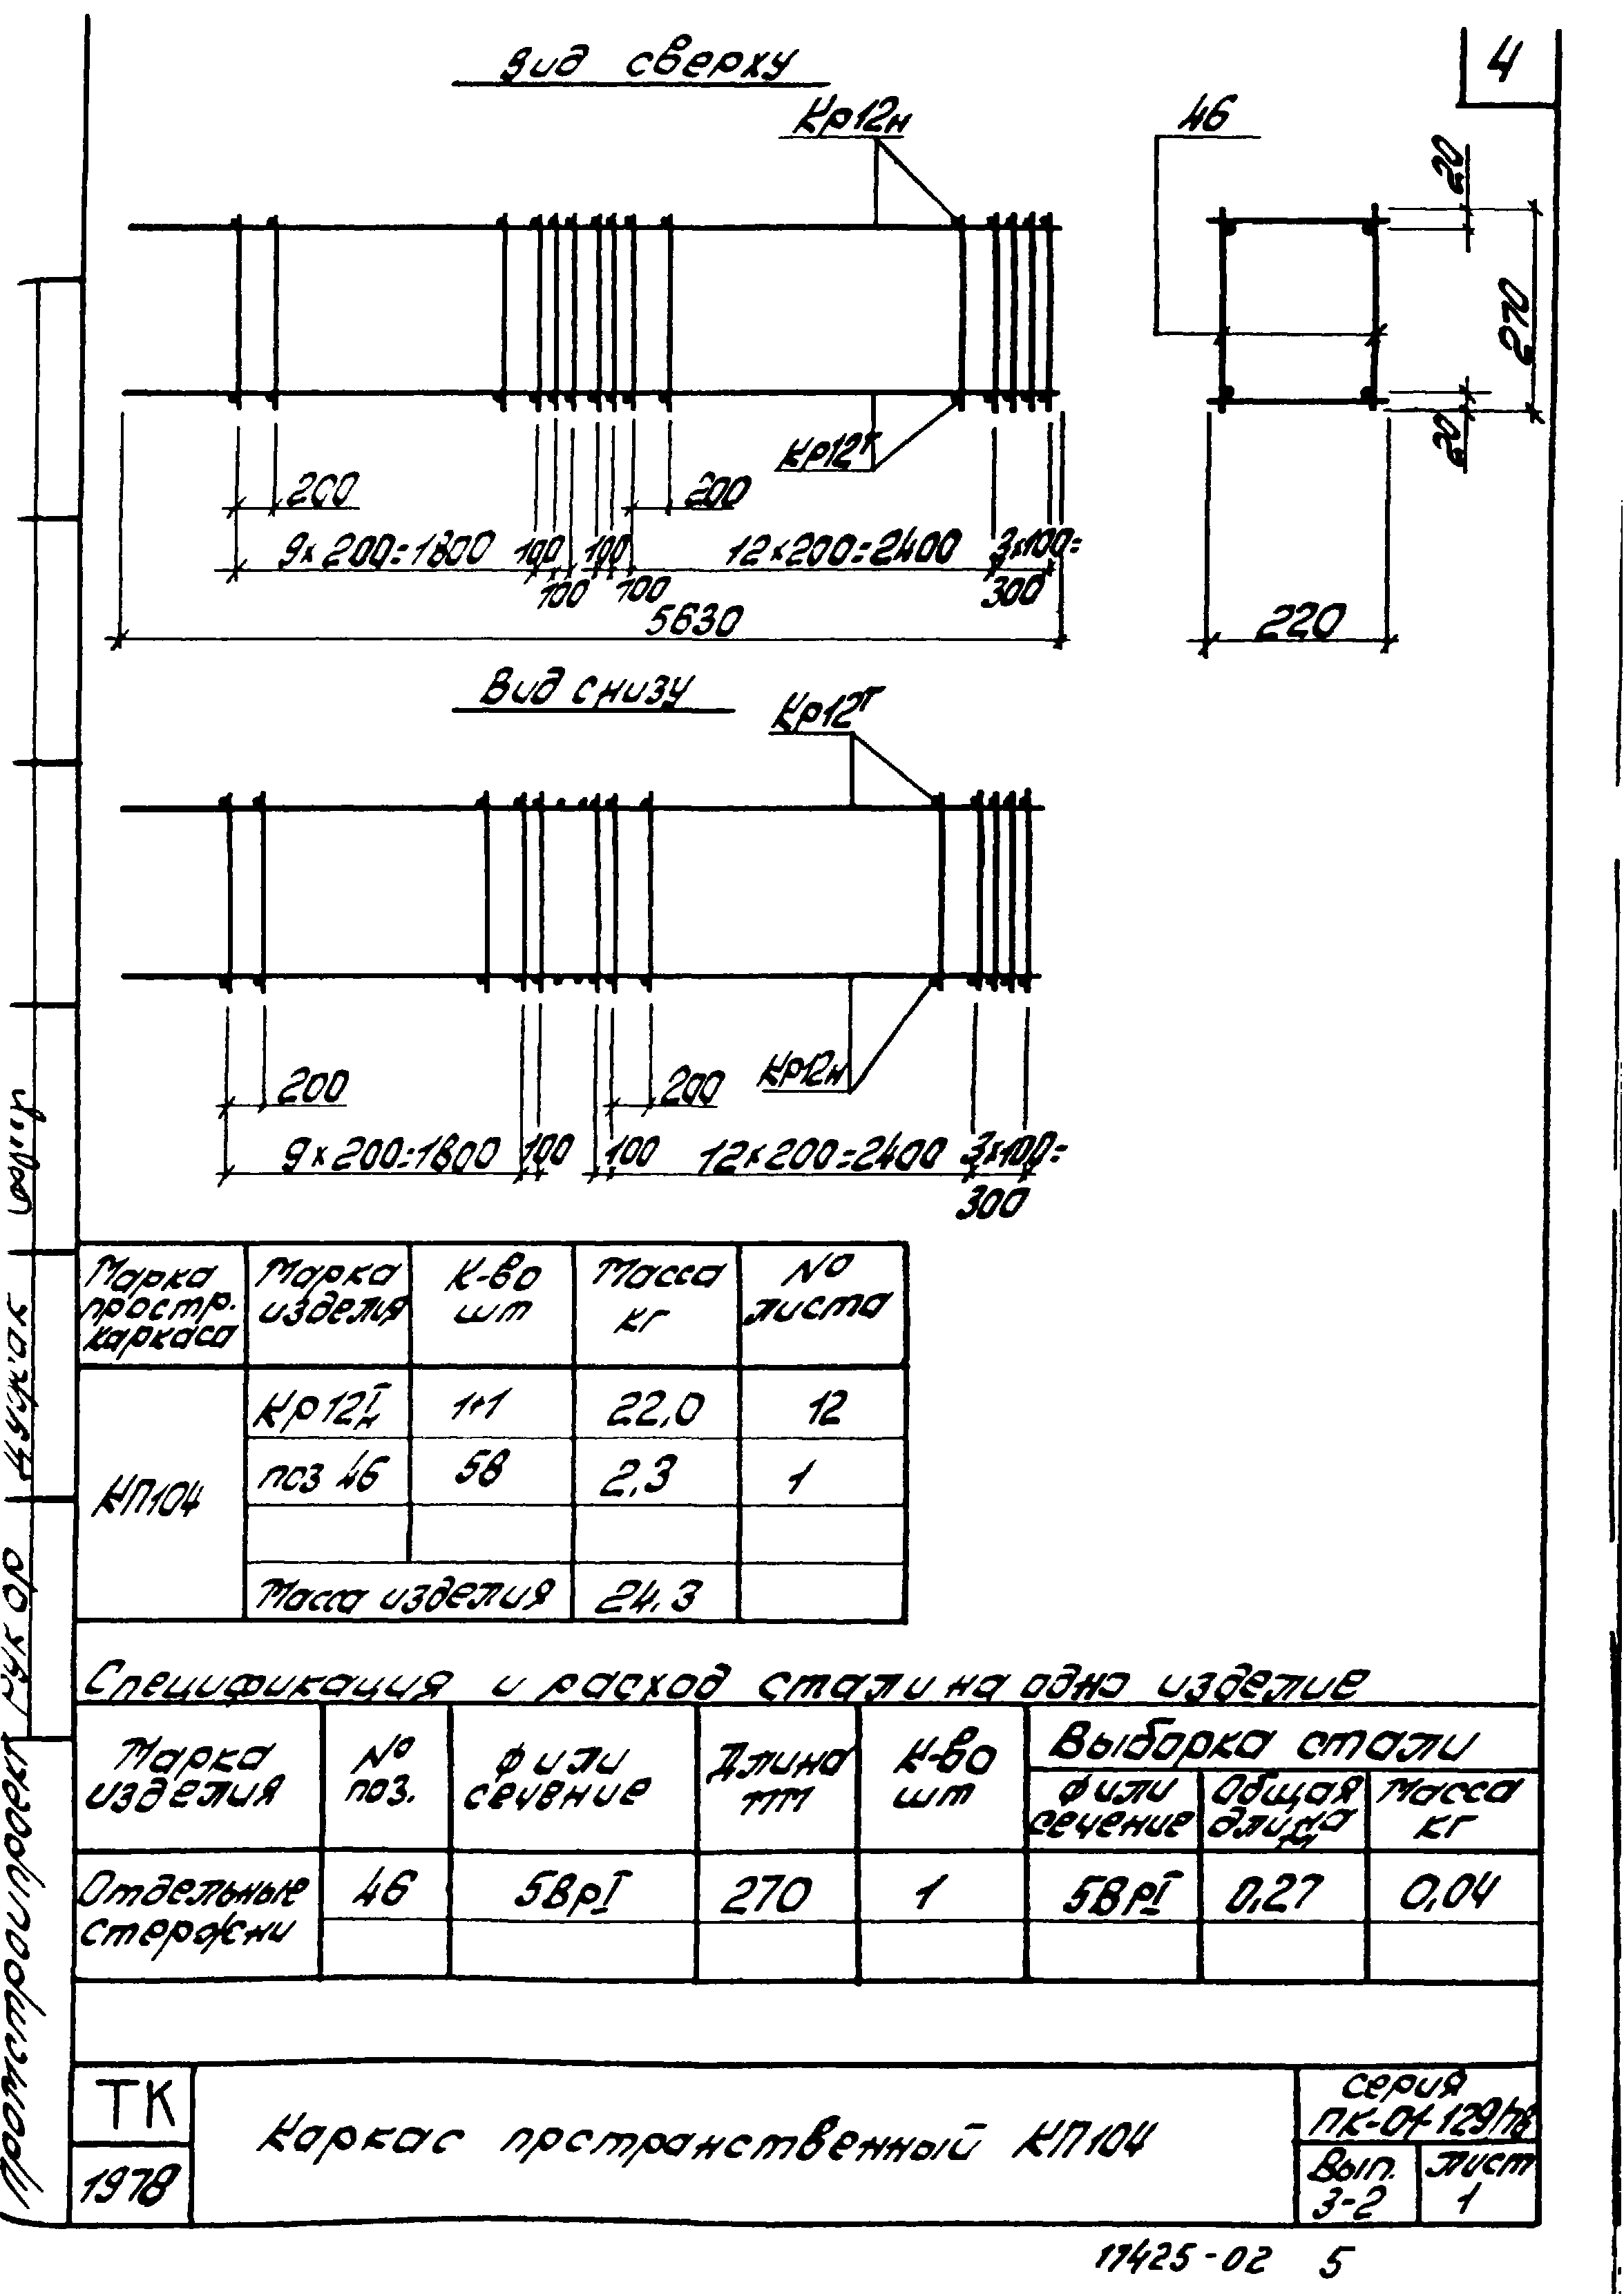 4
Вид сверху
Кр12н
46
20
270
20
220
Кр12т
200
200
9×200=1800
100
100
100
100
12×200=2400
3×100=
300
5630
Вид снизу
Кр12т
Кр12н
200
200
9×200=1800
100
100
12×200=2400
3×100=
300
Марка простр. каркаса
Марка изделия
К-во шт
Масса кг
№ листа
КП104
Кр12т/н 1+1 22,0 12
поз 46 58 2,3 1
Масса изделия 24,3
Спецификация и расход стали на одно изделие
Марка изделия
№ поз.
Ф или сечение
Длина мм
К-во шт
Выборка стали
Ф или сечение
Общая длина м
Масса кг
Отдельные стержни
46 5ВрI 270 1 5ВрI 0,27 0,04
ТК
1978
Каркас прстранственный КП104
серия
ПК-01-129/78
Вып.
3-2
лист
1
17425-02 5
Промстройпроект
Рук ор